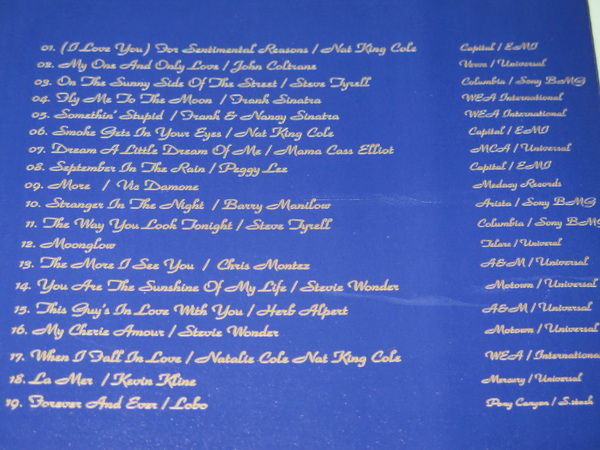 01. (I Love You) For Sentimental Reasons / Nat King Cole Capital / EMI
02. My One And Only Love / John Coltrane Verve / Universal
03. On The Sunny Side Of The Street / Steve Tyrell Columbia / Sony BMG
04. Fly Me To The Moon / Frank Sinatra WEA International
05. Somethin' Stupid / Frank & Nancy Sinatra WEA International
06. Smoke Gets In Your Eyes / Nat King Cole Capital / EMI
07. Dream A Little Dream Of Me / Mama Cass Elliot MCA / Universal
08. September In The Rain / Peggy Lee Capital / EMI
09. More / Vic Damone Medacy Records
10. Stranger In The Night / Barry Manilow Arista / Sony BMG
11. The Way You Look Tonight / Steve Tyrell Columbia / Sony BMG
12. Moonglow Telarc / Universal
13. The More I See You / Chris Montez A&M / Universal
14. You Are The Sunshine Of My Life / Stevie Wonder Motown / Universal
15. This Guy's In Love With You / Herb Alpert A&M / Universal
16. My Cherie Amour / Stevie Wonder Motown / Universal
17. When I Fall In Love / Natalie Cole Nat King Cole WEA / International
18. La Mer / Kevin Kline Mercury / Universal
19. Forever And Ever / Lobo Pony Canyon / S.tech